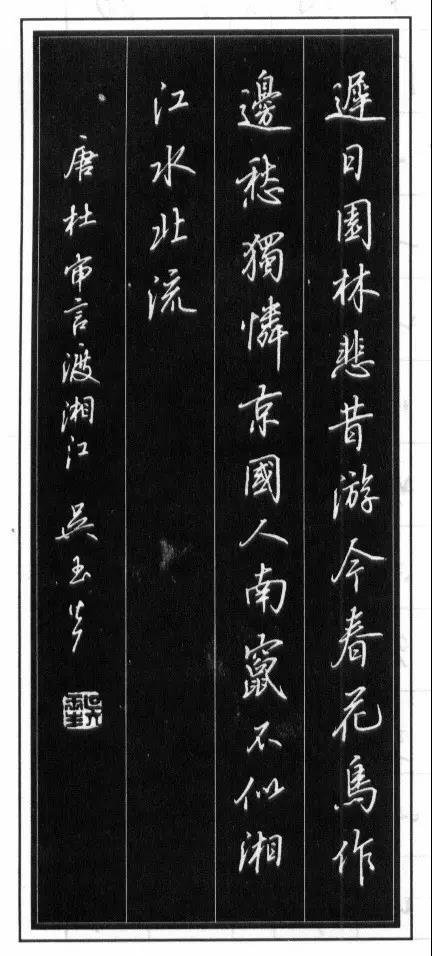 遲日園林悲昔游今春花鳥作
邊愁獨憐京國人南竄不似湘
江水北流
唐杜审言渡湘江 吳玉生